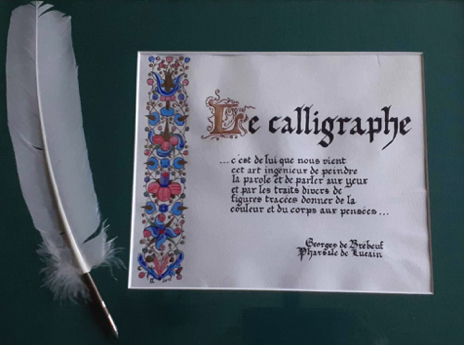 Le calligraphe
...c'est de lui que nous vient
cet art ingenieux de peindre
la parole et de parler aux yeux
et par les traits divers de
figures tracées donner de la
couleur et du corps aux pensées...
Georges de Brébeuf
Pharsale de Lucain